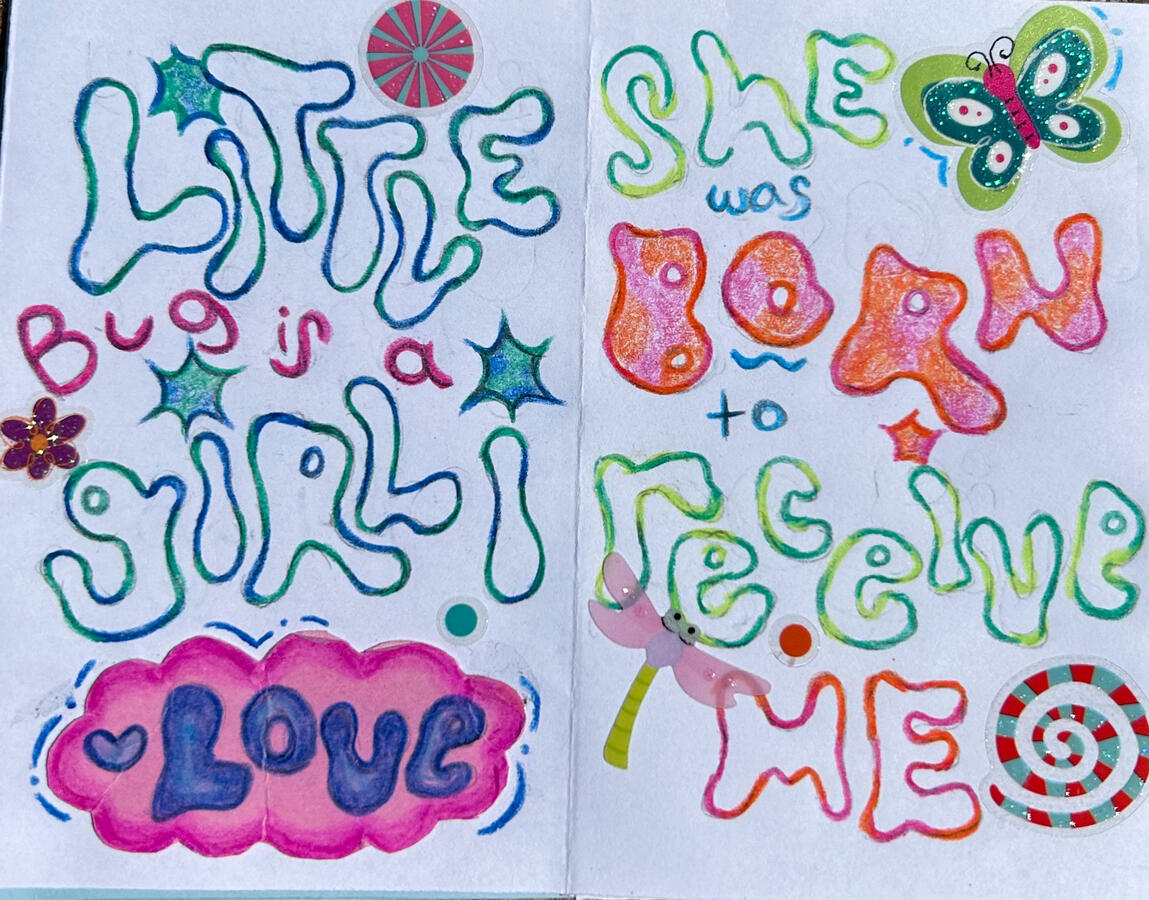 LiTTlE
Bug is a
gIRL I
LOVe
SHE
was
BORN
to
receive
ME